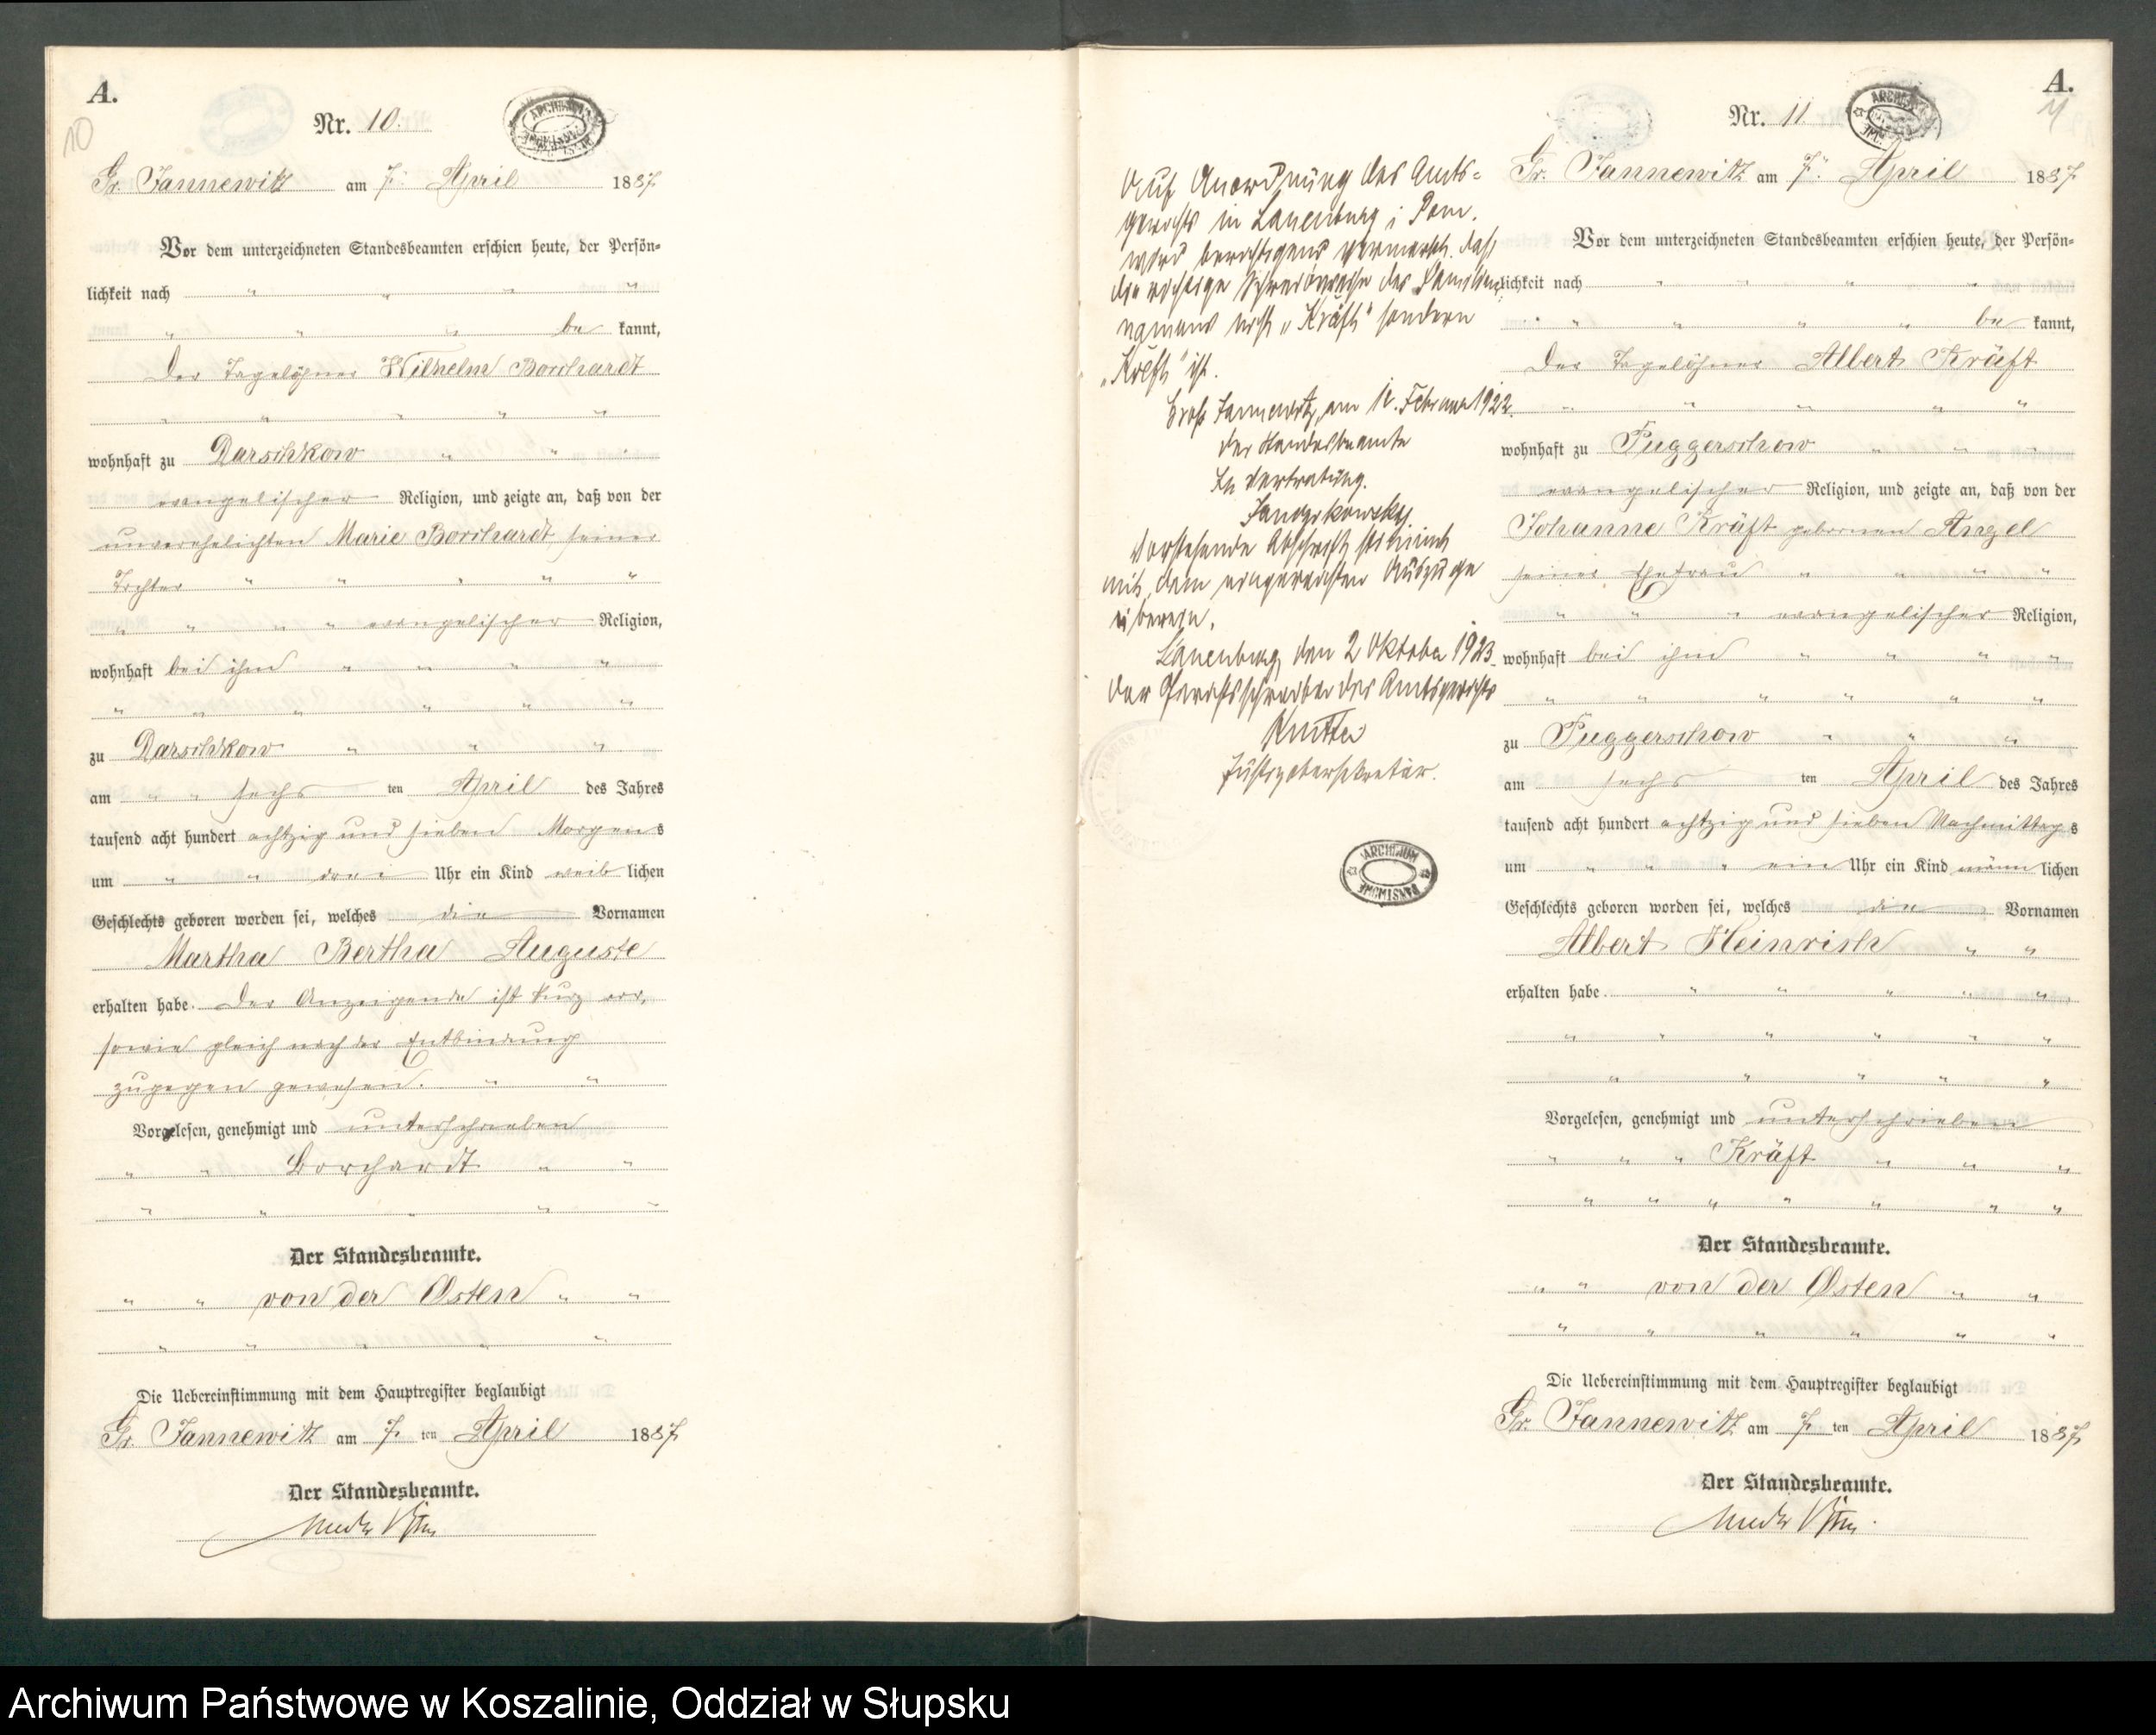 A.
10
Nr. 10.
ARCHIWUM PAŃSTWOWE
Gr. Jannewitz am 7. April 1887.
Vor dem unterzeichneten Standesbeamten erschien heute, der Persön-
lichkeit nach " " " "
" " " be kannt,
der Tagelöhner Wilhelm Borchardt
" " " " "
wohnhaft zu Darschkow " " "
evangelischer Religion, und zeigte an, daß von der
unverehelichten Marie Borchardt, seiner
Tochter " " " " "
" " " " evangelischer Religion,
wohnhaft bei ihm " " " "
" " " " " "
zu Darschkow " " "
am " " sechs ten April des Jahres
tausend acht hundert achtzig und sieben Morgens
um " " drei Uhr ein Kind weib lichen
Geschlechts geboren worden sei, welches die Vornamen
Martha Bertha Auguste
erhalten habe. Der Anzeigende ist kurz vor,
sowie gleich nach der Entbindung
zugegen gewesen. " "
Vorgelesen, genehmigt und unterschrieben
" " Borchardt " "
" " " " "
Der Standesbeamte.
" " von der Osten " "
" " " " "
Die Uebereinstimmung mit dem Hauptregister beglaubigt
Gr. Jannewitz am 7. ten April 1887.
Der Standesbeamte.
Auf Anordnung des Amts-
gerichts in Lauenburg i Pom.
wird berichtigend vermerkt, daß
die richtige Schreibweise des Familien-
namens nicht „Kräft" sondern
„Kreft" ist.
Groß Jannewitz, am 11. Februar 1922.
Der Standesbeamte
In Vertretung.
Vorstehende Abschrift stimmt
mit dem eingereichten Auszuge
überein.
Lauenburg, den 2 Oktober 1923.
Der Gerichtsschreiber des Amtsgerichts
Justizobersekretär.
ARCHIWUM PAŃSTWOWE
A.
11
Nr. 11
ARCHIWUM PAŃSTWOWE
Gr. Jannewitz am 7. April 1887.
Vor dem unterzeichneten Standesbeamten erschien heute, der Persön-
lichkeit nach " " " "
" " " " be kannt,
der Tagelöhner Albert Kräft
" " " " "
wohnhaft zu Puggerschow " " "
evangelischer Religion, und zeigte an, daß von der
Johanne Kräft gebornen Angel
seiner Ehefrau " " " "
" " " evangelischer Religion,
wohnhaft bei ihm " " " "
" " " " " "
zu Puggerschow " " "
am sechs ten April des Jahres
tausend acht hundert achtzig und sieben Nachmittags
um " " " ein Uhr ein Kind männ lichen
Geschlechts geboren worden sei, welches die Vornamen
Albert Heinrich " "
erhalten habe. " " " " "
" " " " " "
" " " " "
Vorgelesen, genehmigt und unterschrieben
" " " Kräft " " "
" " " " " " "
Der Standesbeamte.
" " von der Osten " "
" " " " " "
Die Uebereinstimmung mit dem Hauptregister beglaubigt
Gr. Jannewitz am 7. ten April 1887.
Der Standesbeamte.
Archiwum Państwowe w Koszalinie, Oddział w Słupsku